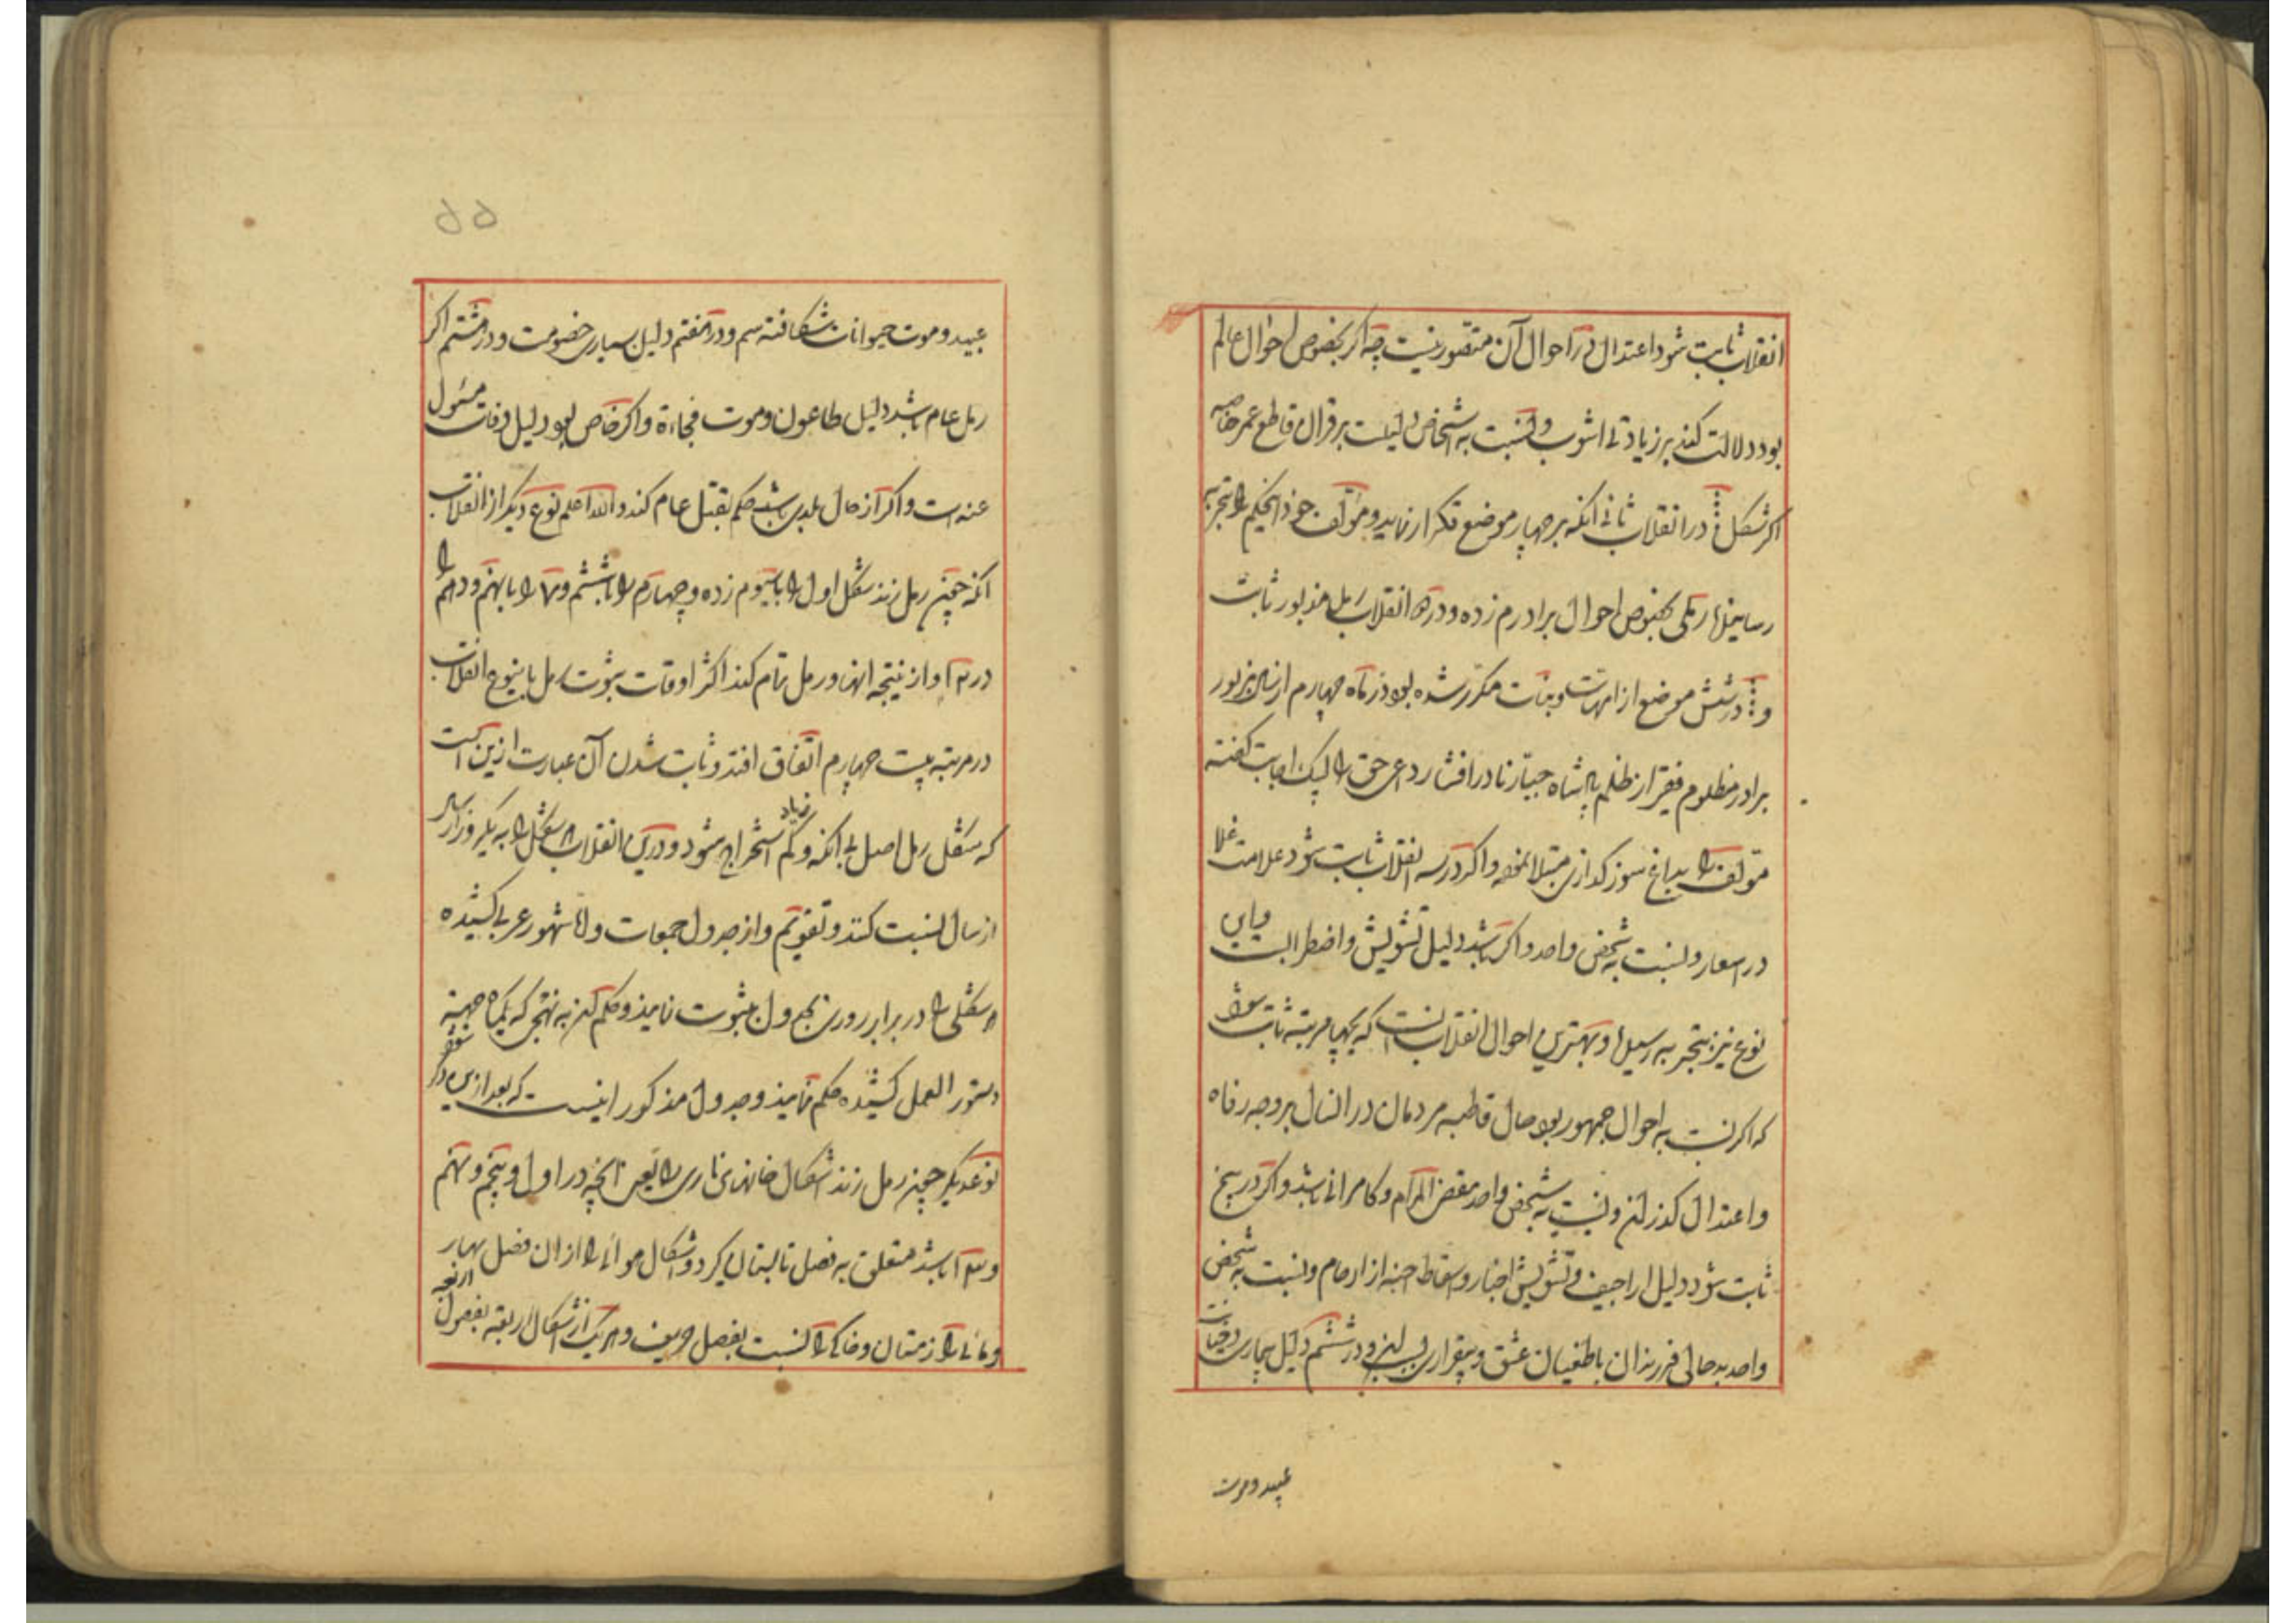 انقلاب ثابت شود اعتدال در احوال آن متصور نیست چه اگر بخصوص احوال عالم
بود دلالت کند بر زیادتی اشوب و نسبت به اشخاص دلیلست بر قران قاطع عمر خاصه
اکر شکل در انقلاب ثانی انکه بر چهار موضع تکرار نماید و مؤلف خود اینحکیم را بتجربه
رسانیده رملی بخصوص احوال برادرم زده و در انقلاب رمل مذبور ثابت
و در شش موضع از امهات و بنات مکرر شده بود در ماه چهارم از سال مزبور
برادر مظلوم فقیر از ظلم پادشاه جبار نادر افشار داعی حق را لبیک اجابت گفته
مؤلف را بداغ سوز کدازی مبتلا نمود و اکر در سه انقلاب ثابت شود علامت غلا
در اسعار و نسبت به شخص واحد و اکر باشد دلیل تشویش و اضطرابست و این
نوع نیز بتجربه رسیده و بهترین احوال انقلاب انست که بچهار مرتبه ثابت شود
که اکر نسبت به احوال جمهور بود حال قاطبه مردمان در انسال بر وجه رفاه
و اعتدال کذرد و نسبت به شخص واحد مقضی المرام و کامرانی باشد و اکر در پنج
ثابت شود دلیل اراجیف و تشویش اخبار و سقاط اجنه از ارحام و نسبت به شخص
واحد بدحالی فرزندان با طغیان عشق و بیقراری و در ششم دلیل بیماری و وفات
عبید و موت
۵۵
عبید و موت حیوانات شکافته سم و در هفتم دلیل بسیاری خصومت و در هشتم اکر
رمل عام باشد دلیل طاعون و موت فجاءة و اکر خاص بود دلیل وفات مسئول
عنه است و اکر از حال بلدی باشد حکم بقتل عام کند والله اعلم نوع دیکر از انقلاب
انکه چون رمل زند شکل اول را با سیوم زده و چهارم را با ششم و ۷ را با نهم و دهم را
در و از نتیجه انها و رمل تمام کند اکثر اوقات ثبوت رمل باینوع انقلاب
در مرتبه بیست چهارم اتفاق افتد و ثابت شدن آن عبارت ازین است
که شکل رمل اصل بی انکه زیاد و کم استخراج شود و درین انقلاب هر شکل را به یکروز از سال
از سال نسبت کند و تقویم و از جدول جمعات و شهور عربی کشیده
هر شکلی را در برابر روزی بجدول ثبوت نمایند و حکم کند به نهجی که یکماه جهته
دستور العمل کشیده حکم نمایند و جدول مذکور اینست که بعد ازین ذکر شود
نوعدیکر چون رمل زند اشکال خانهای ناری را یعنی انچه در اول و پنجم و نهم
و باشد متعلق به فصل تابستان کیرد و اشکال هوائی را از ان فصل بهار
و مائی را زمستان و خاکی را نسبت بفصل خریف و هر یک از اشکال اربعه بفصول اربعه